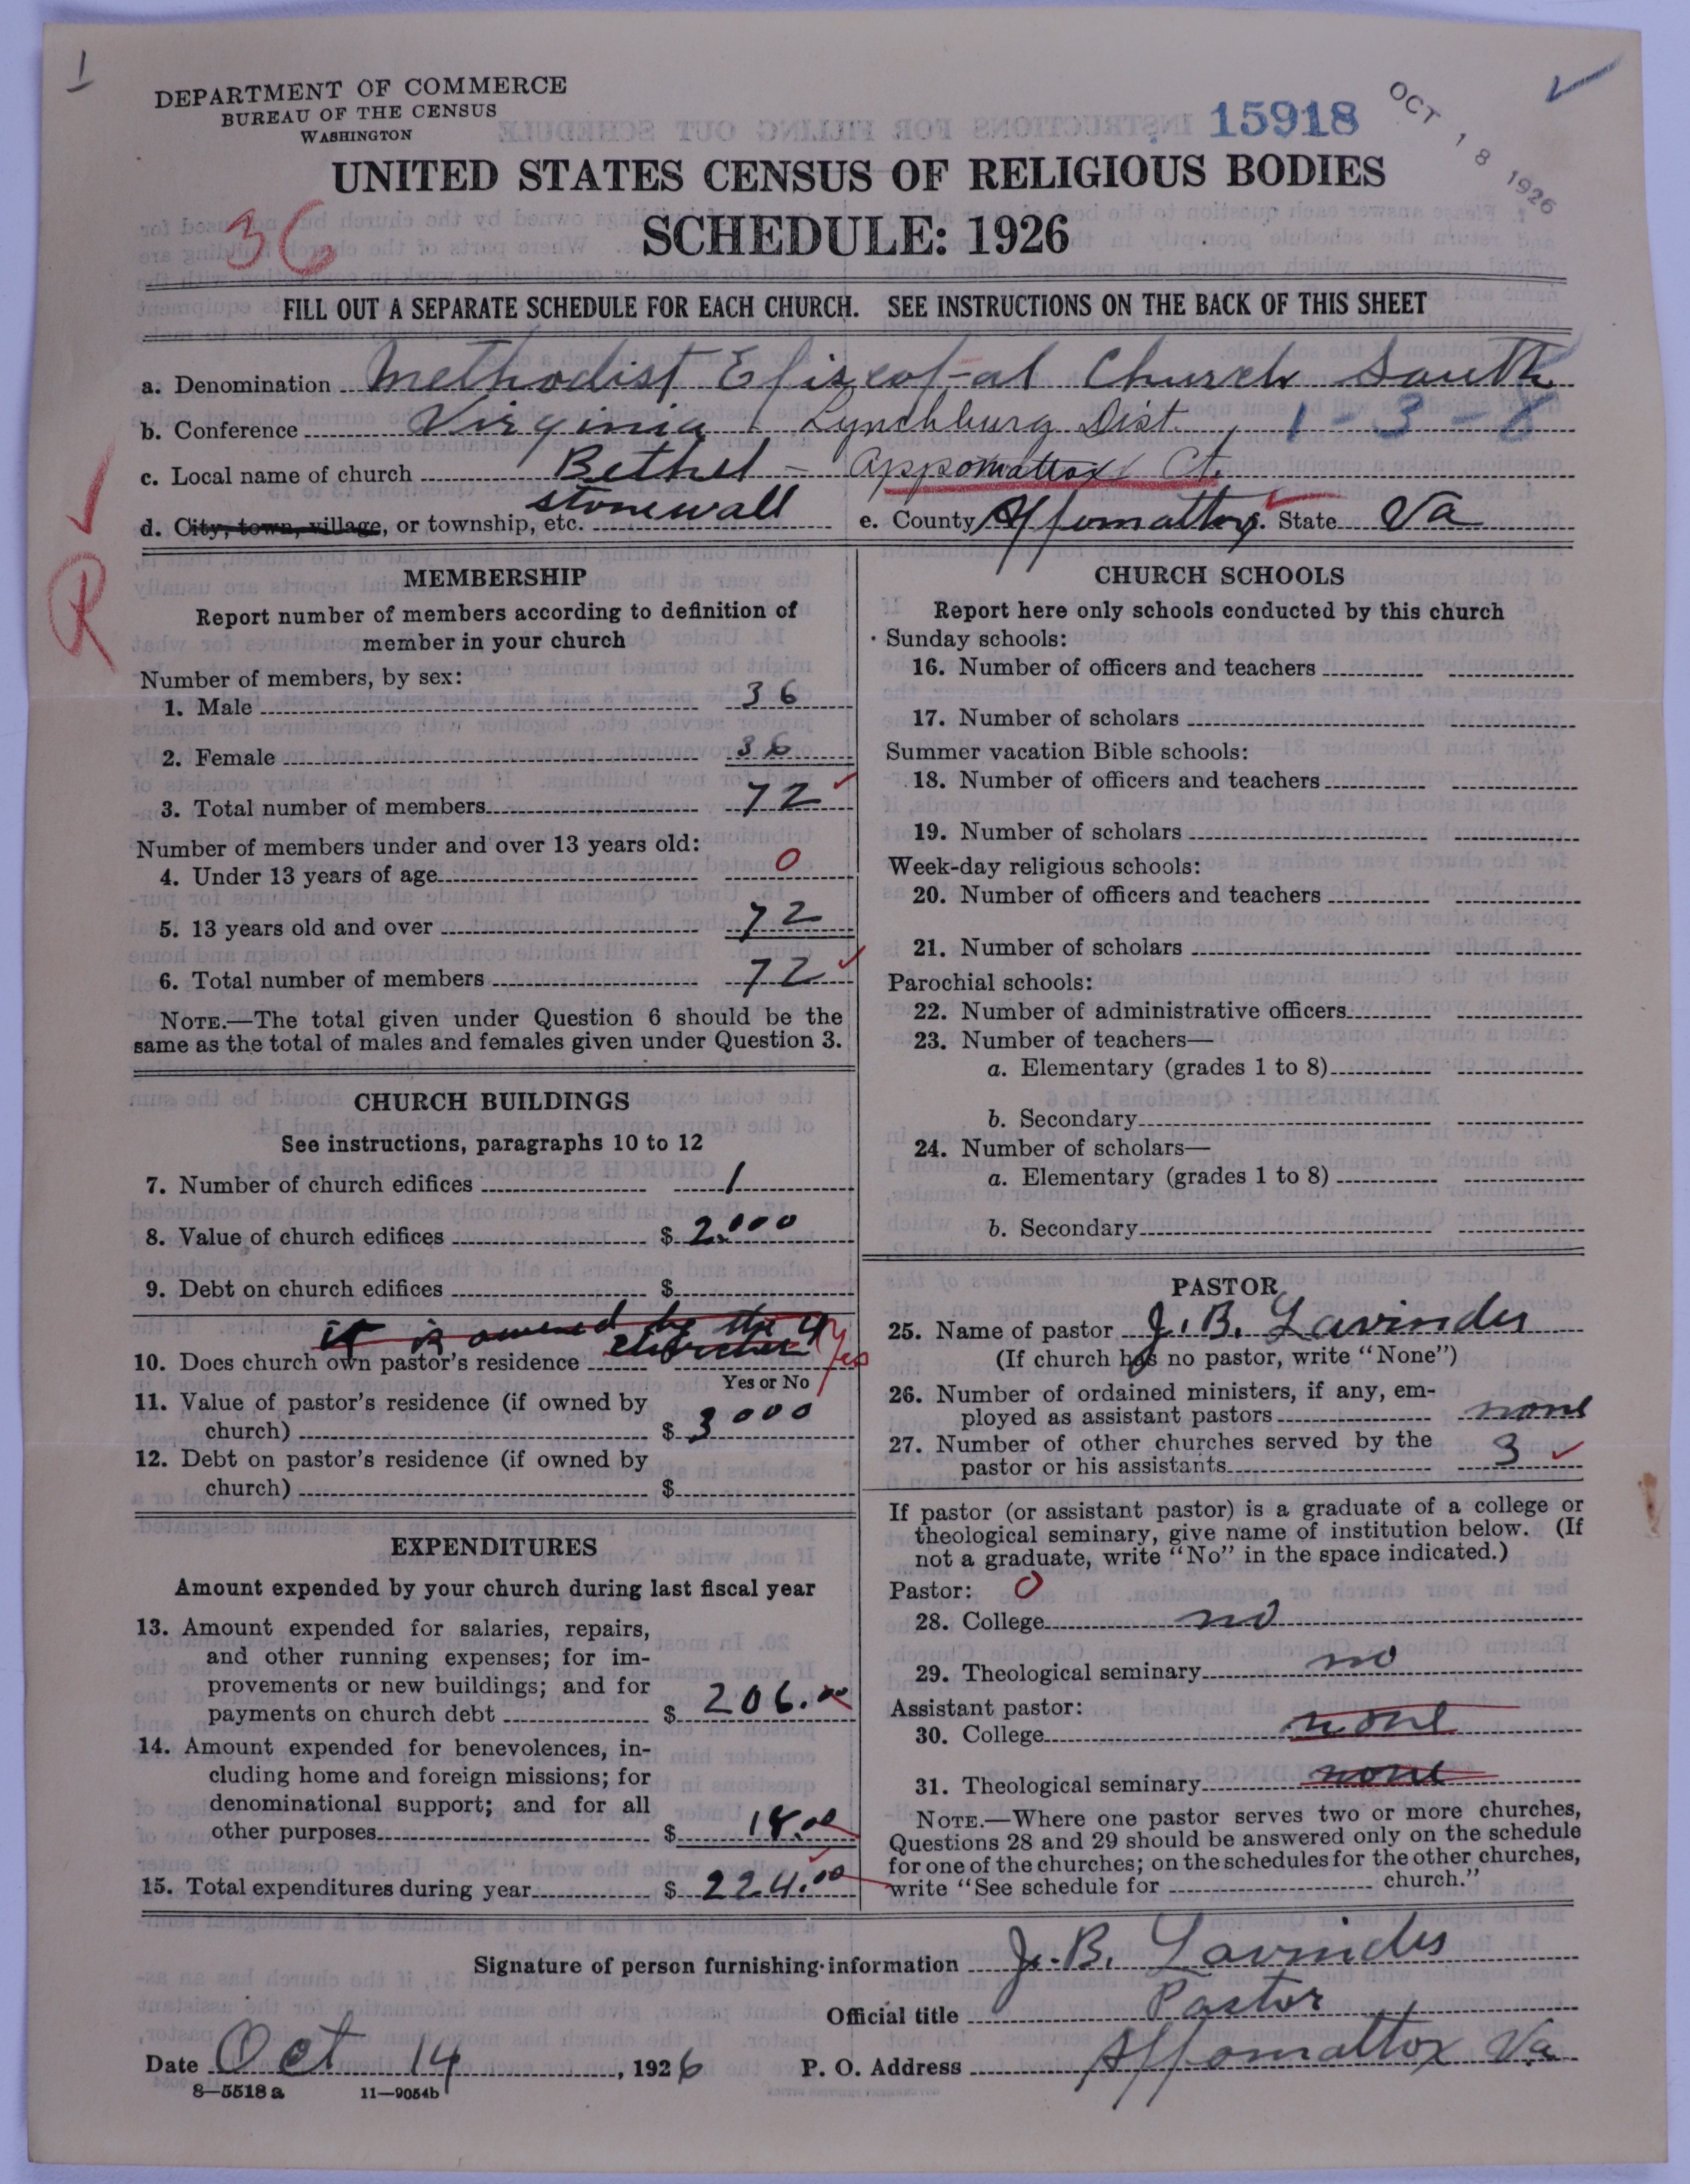 1
DEPARTMENT OF COMMERCE
BUREAU OF THE CENSUS
WASHINGTON
15918
OCT 18 1926
UNITED STATES CENSUS OF RELIGIOUS BODIES
SCHEDULE: 1926
36
FILL OUT A SEPARATE SCHEDULE FOR EACH CHURCH. SEE INSTRUCTIONS ON THE BACK OF THIS SHEET
a. Denomination Methodist Episcopal Church South
b. Conference Virginia / Lynchburg Dist. 1-3-8
c. Local name of church Bethel - Appomattox Ct.
d. City, town, village, or township, etc. Stonewall e. County Appomattox. State Va
R
MEMBERSHIP
Report number of members according to definition of
member in your church
Number of members, by sex:
1. Male 36
2. Female 36
3. Total number of members 72
Number of members under and over 13 years old:
4. Under 13 years of age 0
5. 13 years old and over 72
6. Total number of members 72
NOTE.—The total given under Question 6 should be the
same as the total of males and females given under Question 3.
CHURCH BUILDINGS
See instructions, paragraphs 10 to 12
7. Number of church edifices 1
8. Value of church edifices $ 2.000
9. Debt on church edifices $
it is owned by the 4
churches
10. Does church own pastor's residence Yes
Yes or No
11. Value of pastor's residence (if owned by
church) $ 3000
12. Debt on pastor's residence (if owned by
church) $
EXPENDITURES
Amount expended by your church during last fiscal year
13. Amount expended for salaries, repairs,
and other running expenses; for im-
provements or new buildings; and for
payments on church debt $ 206.00
14. Amount expended for benevolences, in-
cluding home and foreign missions; for
denominational support; and for all
other purposes $ 18.00
15. Total expenditures during year $ 224.00
CHURCH SCHOOLS
Report here only schools conducted by this church
Sunday schools:
16. Number of officers and teachers
17. Number of scholars
Summer vacation Bible schools:
18. Number of officers and teachers
19. Number of scholars
Week-day religious schools:
20. Number of officers and teachers
21. Number of scholars
Parochial schools:
22. Number of administrative officers
23. Number of teachers—
a. Elementary (grades 1 to 8)
b. Secondary
24. Number of scholars—
a. Elementary (grades 1 to 8)
b. Secondary
PASTOR
25. Name of pastor J. B. Lavinder
(If church has no pastor, write "None")
26. Number of ordained ministers, if any, em-
ployed as assistant pastors none
27. Number of other churches served by the
pastor or his assistants 3
If pastor (or assistant pastor) is a graduate of a college or
theological seminary, give name of institution below. (If
not a graduate, write "No" in the space indicated.)
Pastor: 0
28. College no
29. Theological seminary no
Assistant pastor:
30. College none
31. Theological seminary none
NOTE.—Where one pastor serves two or more churches,
Questions 28 and 29 should be answered only on the schedule
for one of the churches; on the schedules for the other churches,
write "See schedule for church."
Signature of person furnishing information J. B. Lavinder
Official title Pastor
Date Oct 14, 1926 P. O. Address Appomattox Va
8—5518a 11—9054b